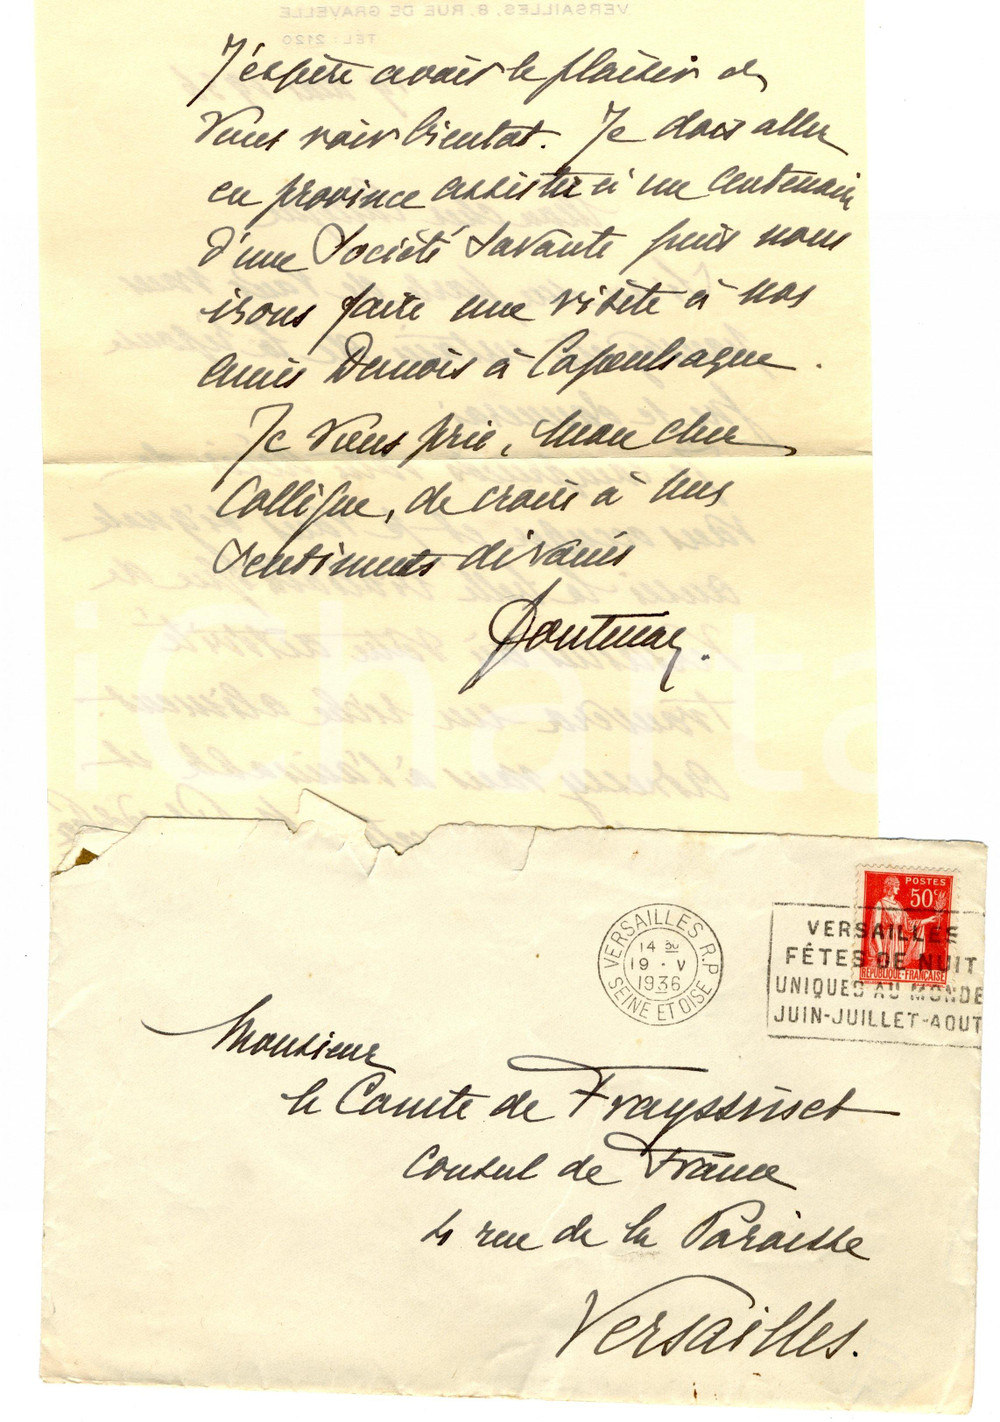 VERSAILLES. 8, RUE DE GRAVELLE
TEL: 2120
J'espère avoir le plaisir de
vous voir bientot. Je dois aller
en province assister à un Centenaire
d'une Société Savante puis nous
irons faire une visite à nos
amis Danois à Copenhague.
Je vous prie, mon cher
Collègue, de croire à mes
sentiments dévoués
Fontenay.
iCharta
VERSAILLES R.P
14 30
19 - V
1936
SEINE ET OISE
POSTES
50c
REPUBLIQUE-FRANÇAISE
VERSAILLES
FÊTES DE NUIT
UNIQUES AU MONDE
JUIN-JUILLET-AOUT
Monsieur
le Comte de Frayssinet
Consul de France
4 rue de la Paroisse
Versailles.